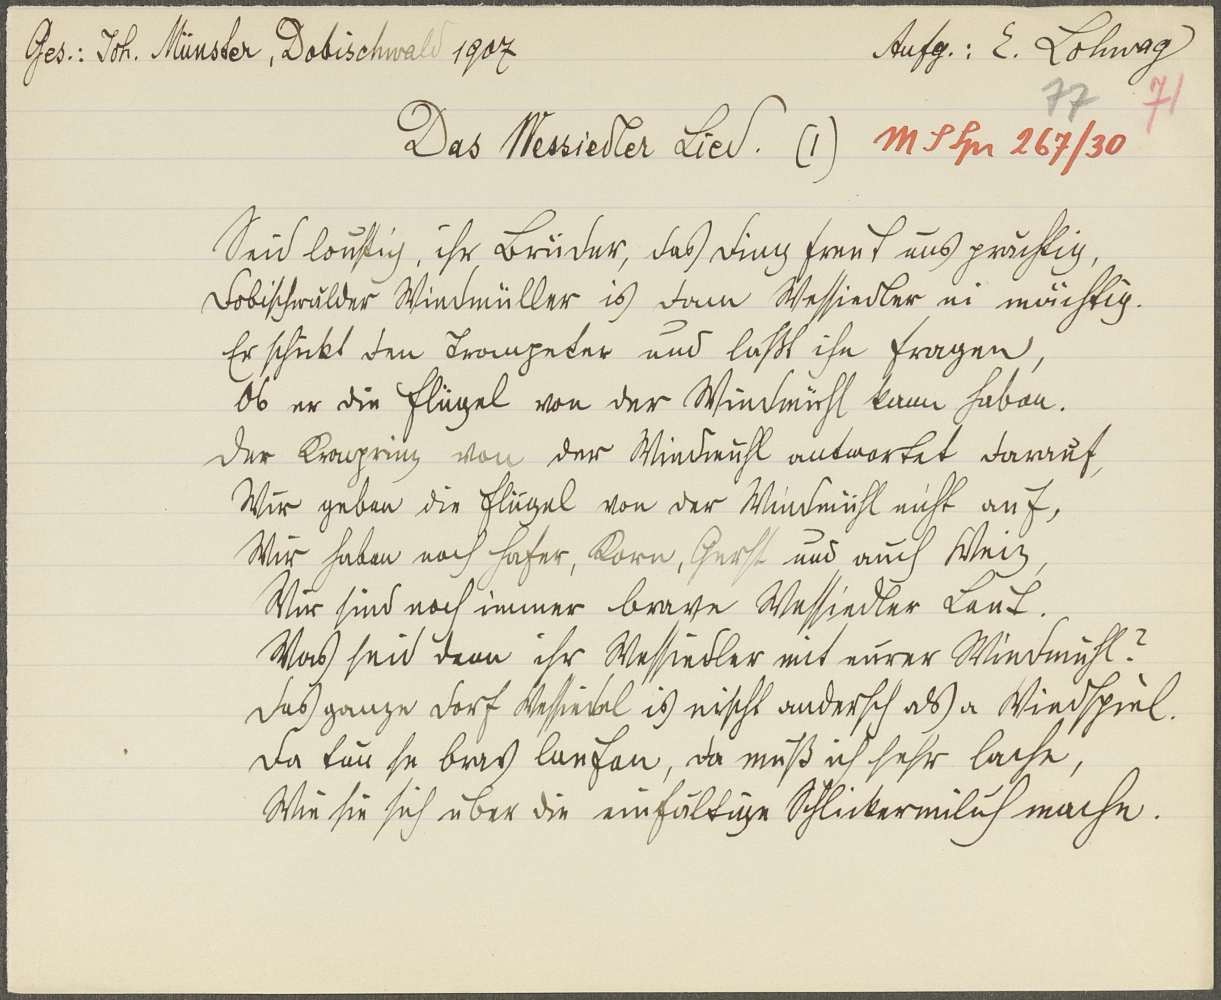 Ges.: Joh. Münster, Dobischwald 1907
Aufg.: E. Lohwag
77 71
Das Wessiedler Lied. (1)
M S Spr 267/30
Seid loustig, ihr Brüder, das Ding freut uns prächtig,
Dobischwälder Windmüller is dam Wessiedler ni mächtig.
Er schickt den Trompeter und laßt ihn fragen,
Ob er die Flügel von der Windmühl kann haben.
Der Kronprinz von der Windmühl antwortet darauf,
Wir geben die Flügel von der Windmühl nicht auf,
Wir haben noch Hafer, Korn, Gerst und auch Weiz,
Wir sind noch immer brave Wessiedler Leut.
Was seid denn ihr Wessiedler mit eurer Windmühl?
Das ganze Dorf Wessiedel is nischt andersch als a Windspiel.
Da tun se brav laufen, da muß ich sehr lache,
Wie sie sich über die einfältige Schlickermilch mache.